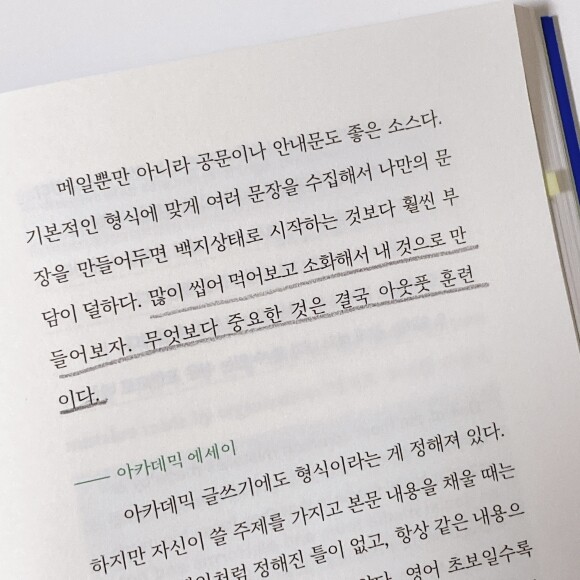 메일뿐만 아니라 공문이나 안내문도 좋은 소스다.
기본적인 형식에 맞게 여러 문장을 수집해서 나만의 문
장을 만들어두면 백지상태로 시작하는 것보다 훨씬 부
담이 덜하다. 많이 씹어 먹어보고 소화해서 내 것으로 만
들어보자. 무엇보다 중요한 것은 결국 아웃풋 훈련
이다.
아카데믹 에세이
아카데믹 글쓰기에도 형식이라는 게 정해져 있다.
하지만 자신이 쓸 주제를 가지고 본문 내용을 채울 때는
정해진 틀이 없고, 항상 같은 내용으
영어 초보일수록